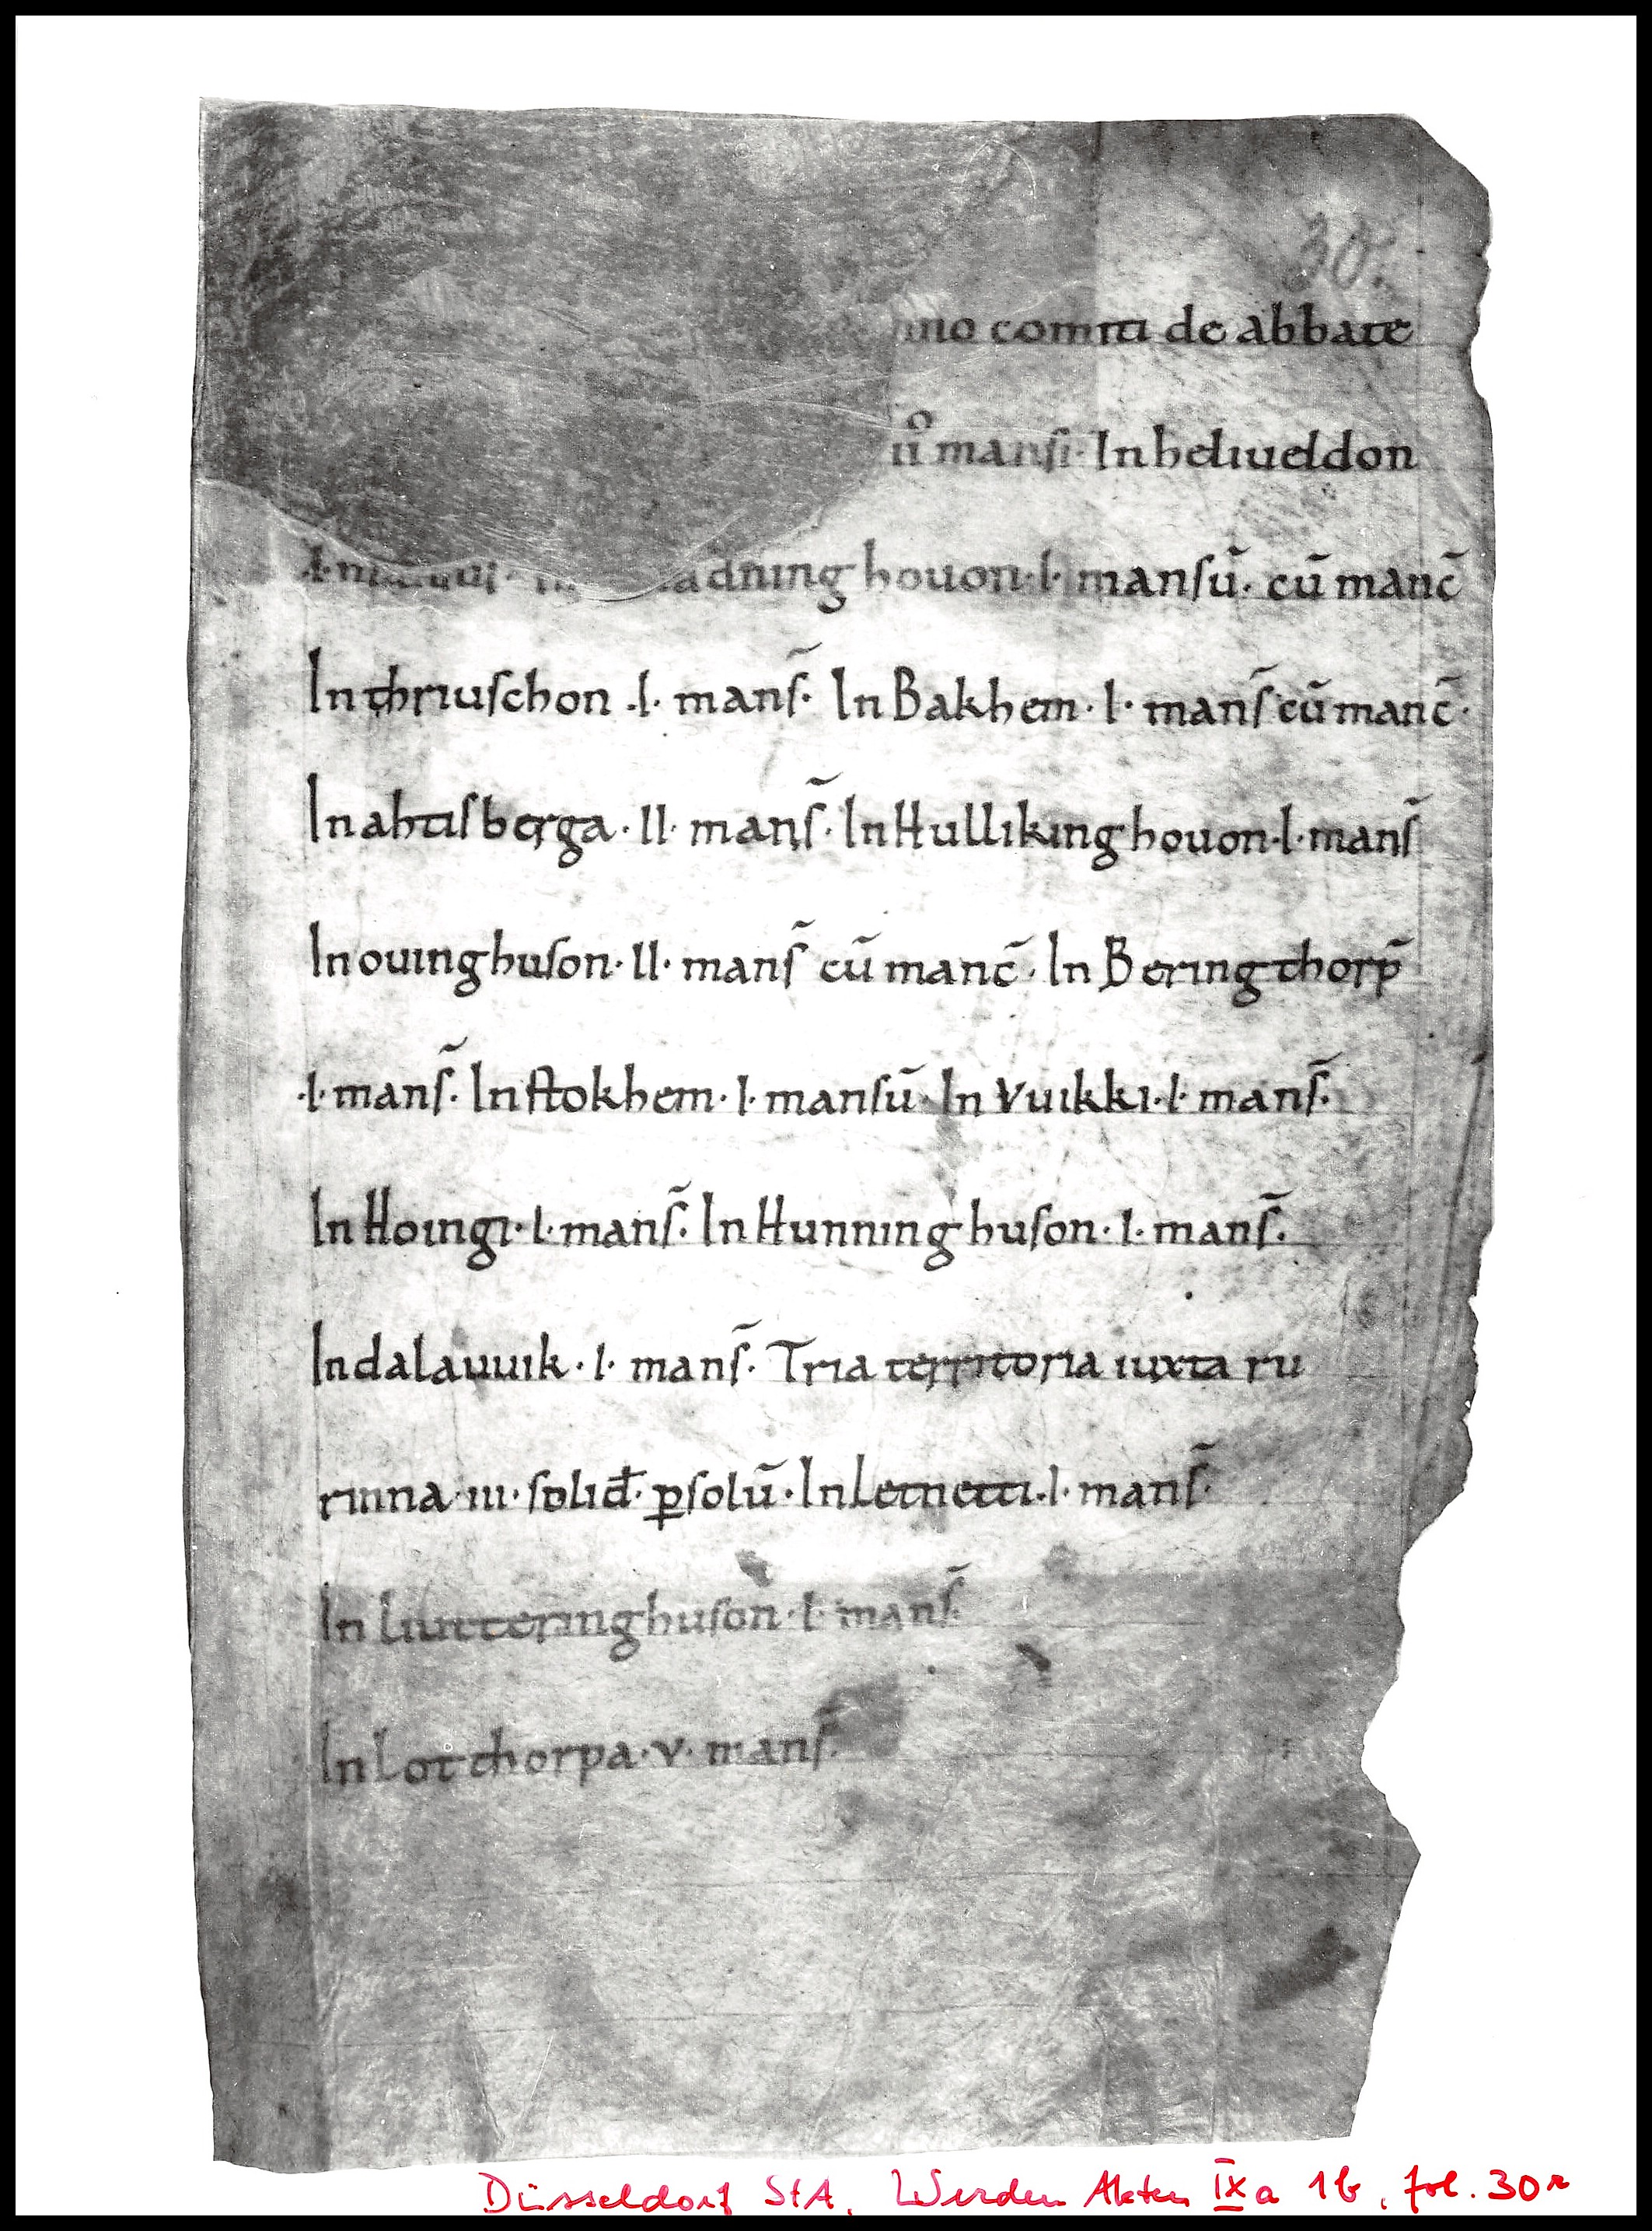 30.
no comiti de abbate
mansi · In heliueldon
adning houon · I · mansū · cū manc̄
In thriuschon · I · mans̄ · In Bakhem · I · mans̄ cū manc̄ ·
In ahtisberga · II · mans̄ · In Hulliking houon · I · mans̄
In ouinghuson · II · mans̄ cū manc̄ · In Beringthorp̄
· I · mans̄ · In stokhem · I · mansū · In Vuikki · I · mans̄ ·
In Hoingi · I · mans̄ · In Hunninghuson · I · mans̄ ·
In dalauuik · I · mans̄ · Tria territoria iuxta ru
rinna · III · solid̄ · ꝑsolū · In Letnetti · I · mans̄ ·
In Liutteringhuson · I · mans̄
In Lotthorpa · V · mans̄ ·
Düsseldorf StA, Werden Akten IX a 1b, fol. 30r